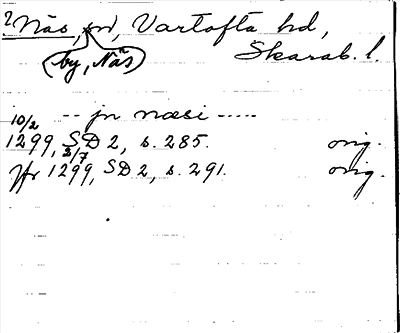 ? Näs, sn, Vartofta hd,
(by, Näs) Skarab. l.
-- jn næsi -----
10/2 1299, SD 2, s. 285. orig.
jfr 3/7 1299, SD 2, s. 291. orig.